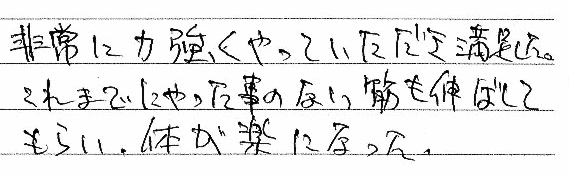 非常に力強くやっていただき満足した。
これまでにやった事のない筋も伸ばして
もらい、体が楽になった。